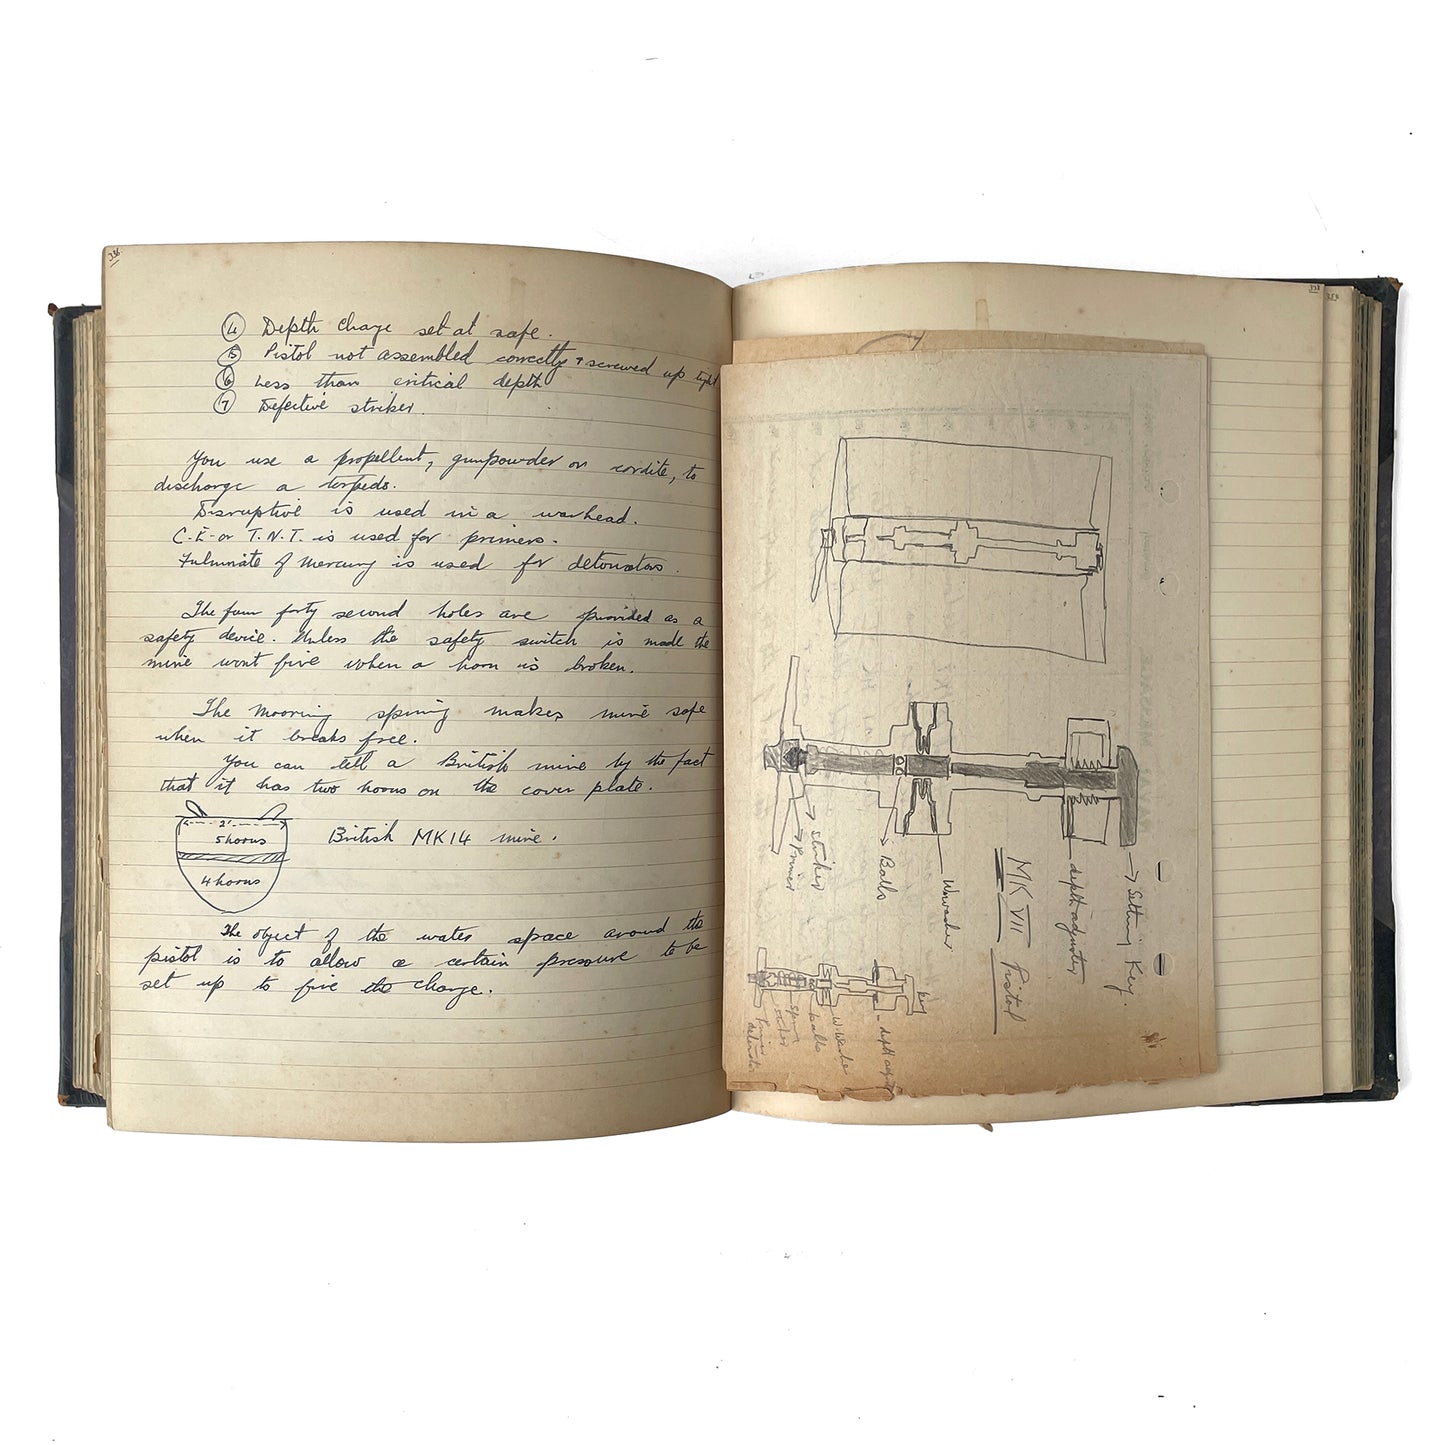 336.
④ Depth Charge set at safe.
⑤ Pistol not assembled correctly & screwed up tight
⑥ Less than critical depth
⑦ Defective striker.
You use a propellent, gunpowder or cordite, to
discharge a torpedo.
Disruptive is used in a warhead.
C.E. or T.N.T. is used for primers.
Fulminate of Mercury is used for detonators.
The four forty second holes are provided as a
safety device. Unless the safety switch is made the
mine wont fire when a horn is broken.
The mooring spring makes mine safe
when it breaks free.
You can tell a British mine by the fact
that it has two horns on the cover plate.
2'
5 horns
4 horns
British MK 14 mine.
The object of the water space around the
pistol is to allow a certain pressure to be
set up to fire the charge.
338
Setting Key.
depth adjuster
MK VII Pistol
Balls
striker
Primer
key
depth
balls
Primer
detonator